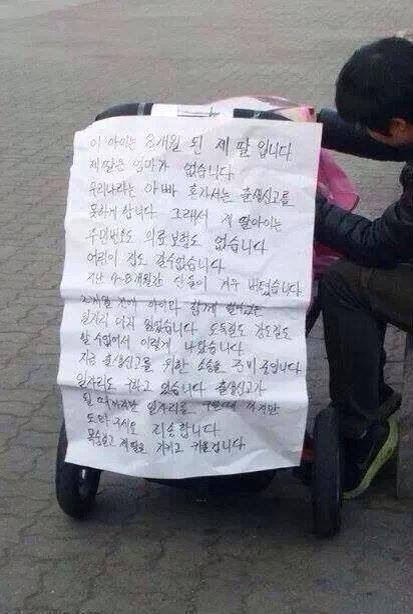 이 아이는 8개월 된 제 딸 입니다
제 딸은 엄마가 없습니다
우리나라는 아빠 혼자서는 출생신고를
못하게 합니다 그래서 제 딸아이는
주민번호도 의료보험도 없습니다
어린이 집도 갈수없습니다
지난 7-8개월간 단둘이 겨우 버텼습니다
아이와 함께 할수있는
일자리 다 잃었습니다 도둑질도 강도질도
할 수없어서 이렇게 나왔습니다
지금 출생신고를 위한 소송을 준비 중입니다
일자리도 구하고 있습니다 출생신고가
될 때까지만 일자리를 구할때 까지만
도와 주시오 죄송합니다
목숨걸고 제 딸을 지키고 키울겁니다